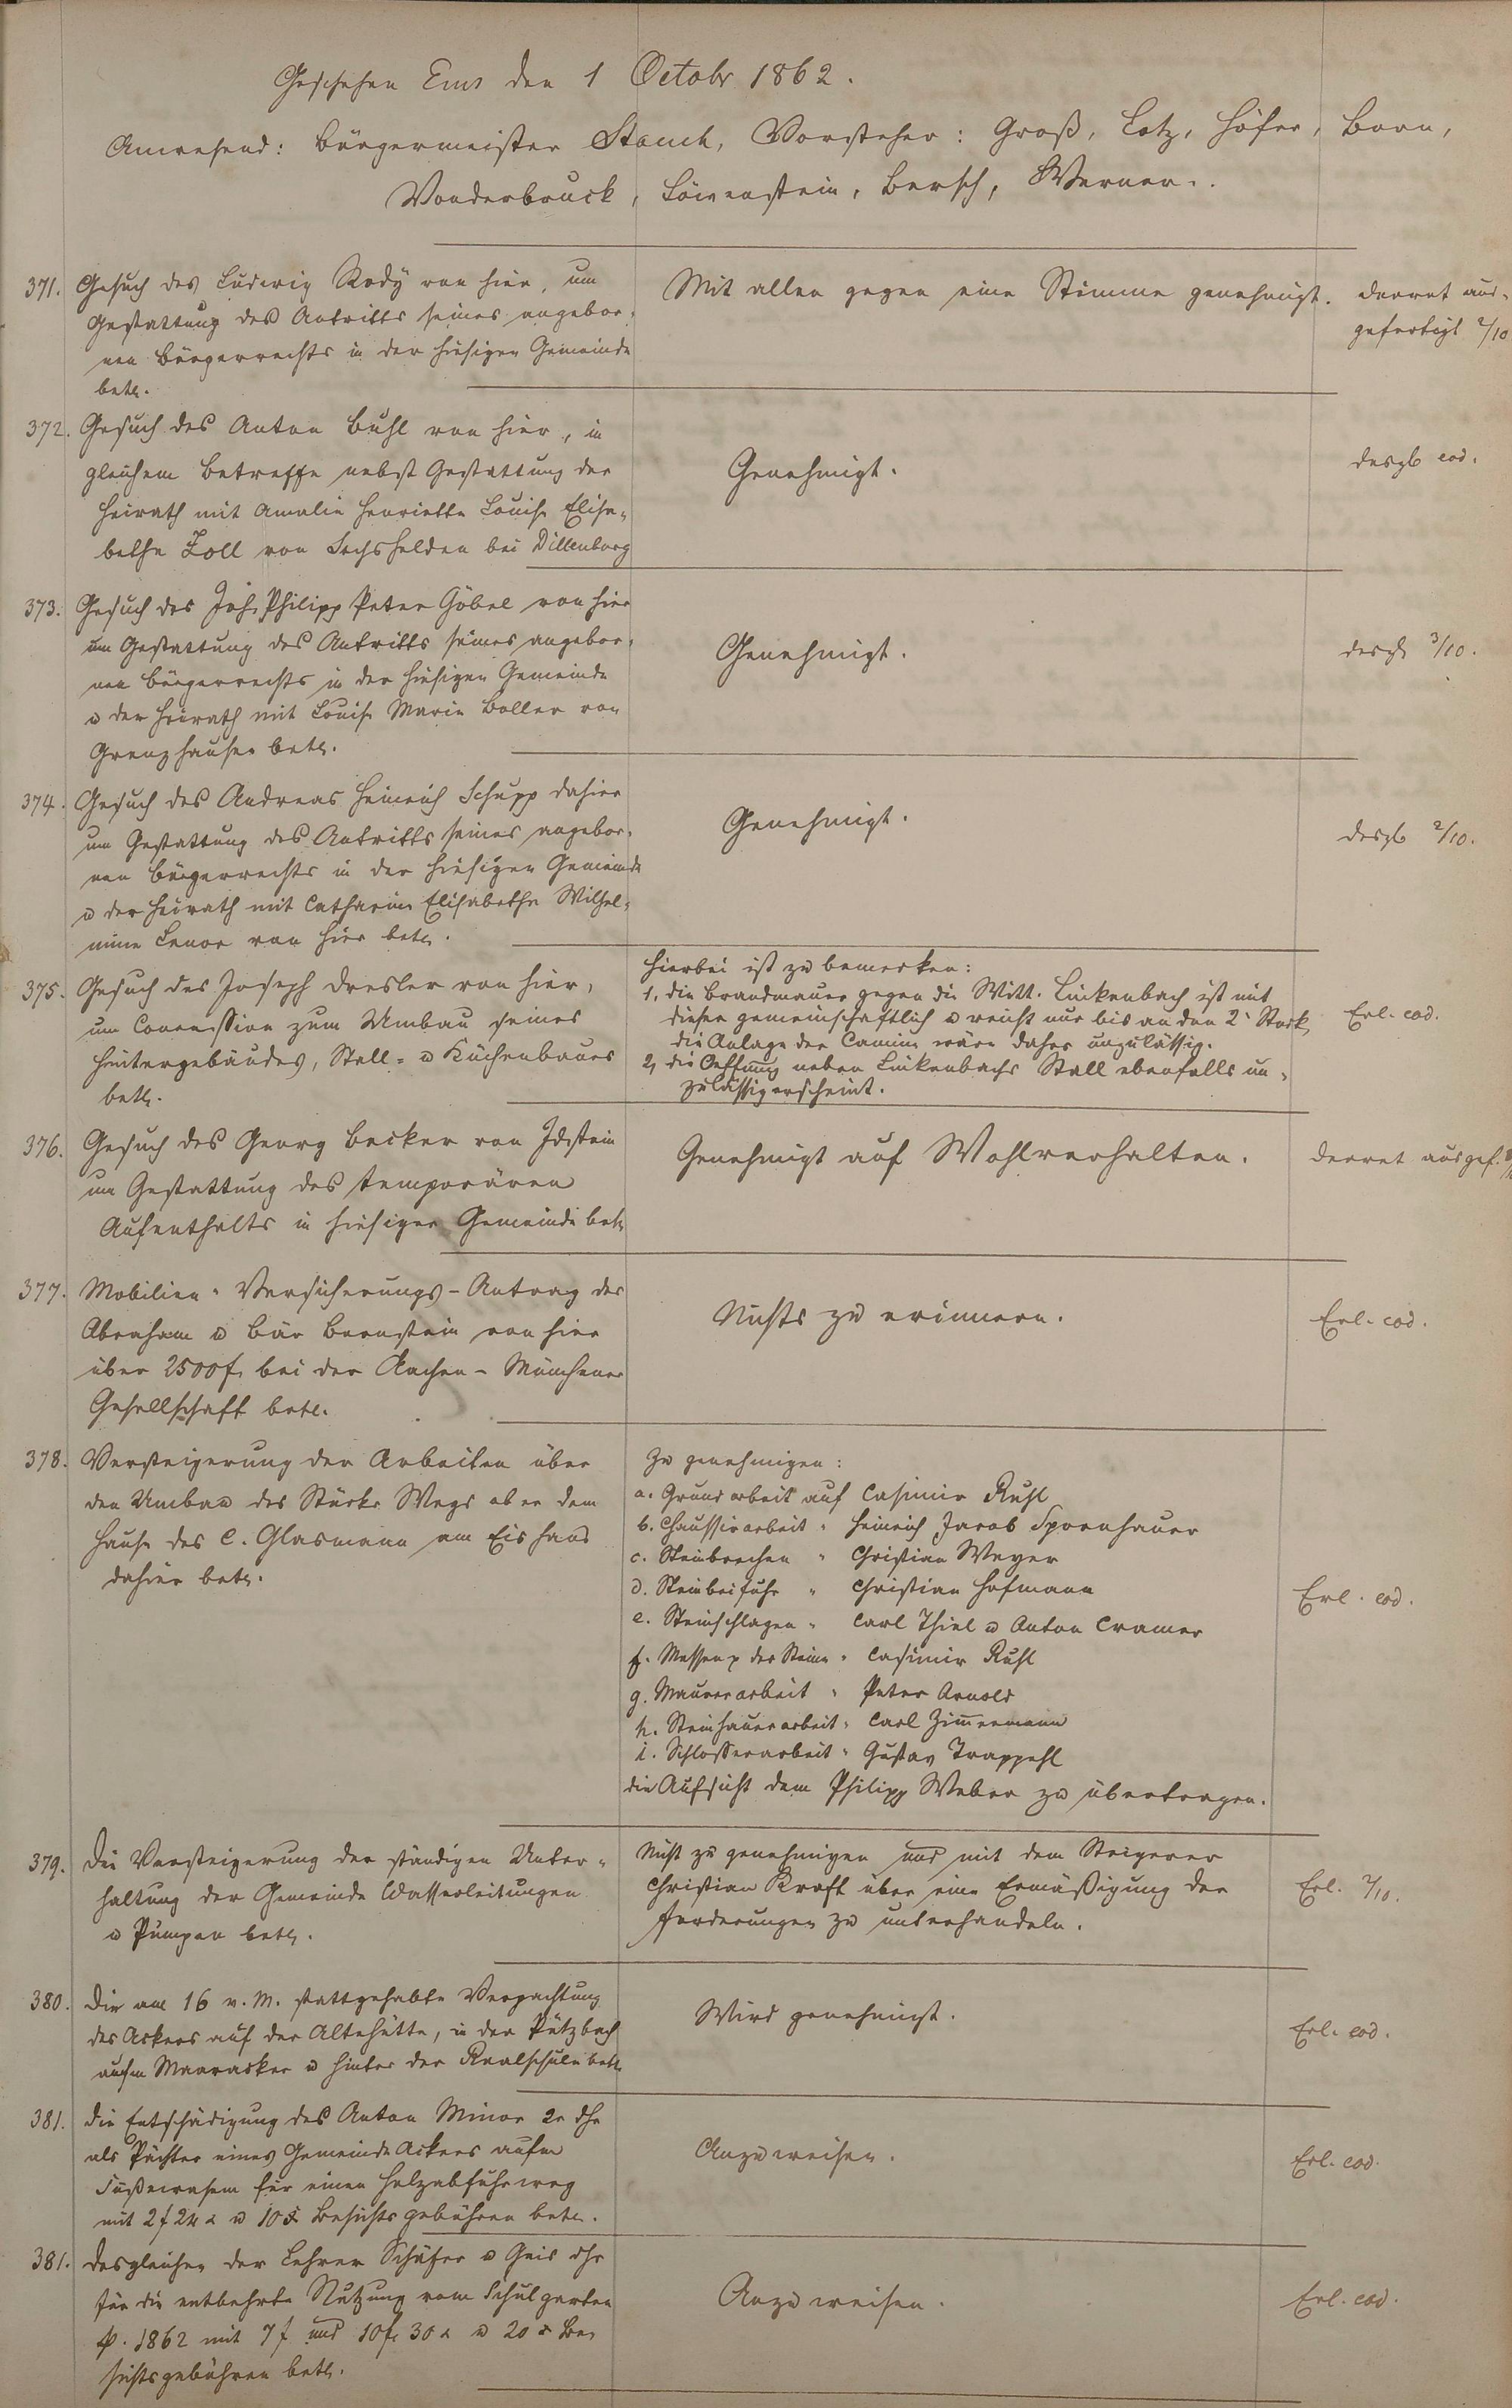 Geschehen Ems den 1 Octobr 1862.
Anwesend: Bürgermeister Stauch, Vorsteher: Groß, Lotz, Höfer, Born,
Vonderbruck, Löwenstein, Bersch, Werner.
371. Gesuch des Ludwig Rody von hier, um
Gestattung des Antritts seines angebor-
nen Bürgerrechts in der hiesigen Gemeinde
betr.
Mit allen gegen eine Stimme genehmigt.
Decret aus-
gefertigt 2/10
372. Gesuch des Anton Buhl von hier, in
gleichem Betreffe nebst Gestattung der
Heirath mit Amalie Henriette Louise Elisa-
bethe Zoll von Sechshelden bei Dillenburg
Genehmigt.
desgl eod.
373. Gesuch des Joh. Philipp Peter Göbel von hier
um Gestattung des Antritts seines angebor-
nen Bürgerrechts in der hiesigen Gemeinde
u der Heirath mit Louise Marie Boller von
Grenzhausen betr.
Genehmigt.
desgl 3/10.
374. Gesuch des Andreas Heinrich Schupp dahier
um Gestattung des Antritts seines angebor-
nen Bürgerrechts in der hiesigen Gemeinde
u der Heirath mit Catharine Elisabethe Wilhel-
mine Lenor von hier betr.
Genehmigt.
desgl 2/10.
375. Gesuch des Joseph Dresler von hier,
um Concession zum Umbau seines
Hintergebäudes, Stall- u Küchenbaues
betr.
Hierbei ist zu bemerken:
1, die Brandmauer gegen die Witt. Linkenbach ist mit
dieser gemeinschaftlich u reicht nur bis an den 2. Stock,
die Anlage der Camine wäre daher unzulässig.
2, die Oeffnung neben Linkenbachs Stall ebenfalls un-
zulässig erscheint.
Erl. eod.
376. Gesuch des Georg Becker von Idstein
um Gestattung des temporären
Aufenthalts in hiesiger Gemeinde betr
Genehmigt auf Wohlverhalten.
Decret ausgef.
377. Mobilien-Versicherungs-Antrag des
Abraham u Bär Bernstein von hier
über 2500 f. bei der Aachen-Münchener
Gesellschaft betr.
Nichts zu erinnern.
Erl. eod.
378. Versteigerung der Arbeiten über
den Umbau des Stücks Wegs ober dem
Hause des C. Glasmann am Eishaus
dahier betr.
Zu genehmigen:
a. Grundarbeit auf Casimir Ruhl
b. Chaussirarbeit " Heinrich Jacob Spornhauer
c. Steinbrechen " Christian Weyer
d. Steinbeifuhr " Christian Hofmann
e. Steinschlagen " Carl Thiel u Anton Cramer
f. Messen p der Steine " Casimir Ruhl
g. Maurerarbeit " Peter Arnold
h. Steinhauerarbeit " Carl Zimmermann
i. Schlosserarbeit " Gustav Trappehl
die Aufsicht dem Philipp Weber zu übertragen.
Erl. eod.
379. Die Versteigerung der ständigen Unter-
haltung der Gemeinde Wasserleitungen
u Pumpen betr.
Nicht zu genehmigen und mit dem Steigerer
Christian Kraft über eine Ermäßigung der
Forderungen zu unterhandeln.
Erl. 2/10.
380. Die am 16 v. M. stattgehabte Verpachtung
des Ackers auf der Altehütte, in der Pützbach
aufm Maaracker u hinter der Realschule betr
Wird genehmigt.
Erl. eod.
381. Die Entschädigung des Anton Minor 2r dhr
als Pächter eines Gemeinde Ackers aufm
für einen Holzabfuhrweg
mit 2 f 24 x u 10 x Besichtsgebühren betr.
Anzuweisen.
Erl. eod.
381. Desgleichen der Lehrer Schäfer u Geis dhr
für die entbehrte Nutzung vom Schulgarten
p. 1862 mit 7 f und 10 f. 30 x u 20 x Be-
sichtsgebühren betr.
Anzuweisen.
Erl. eod.